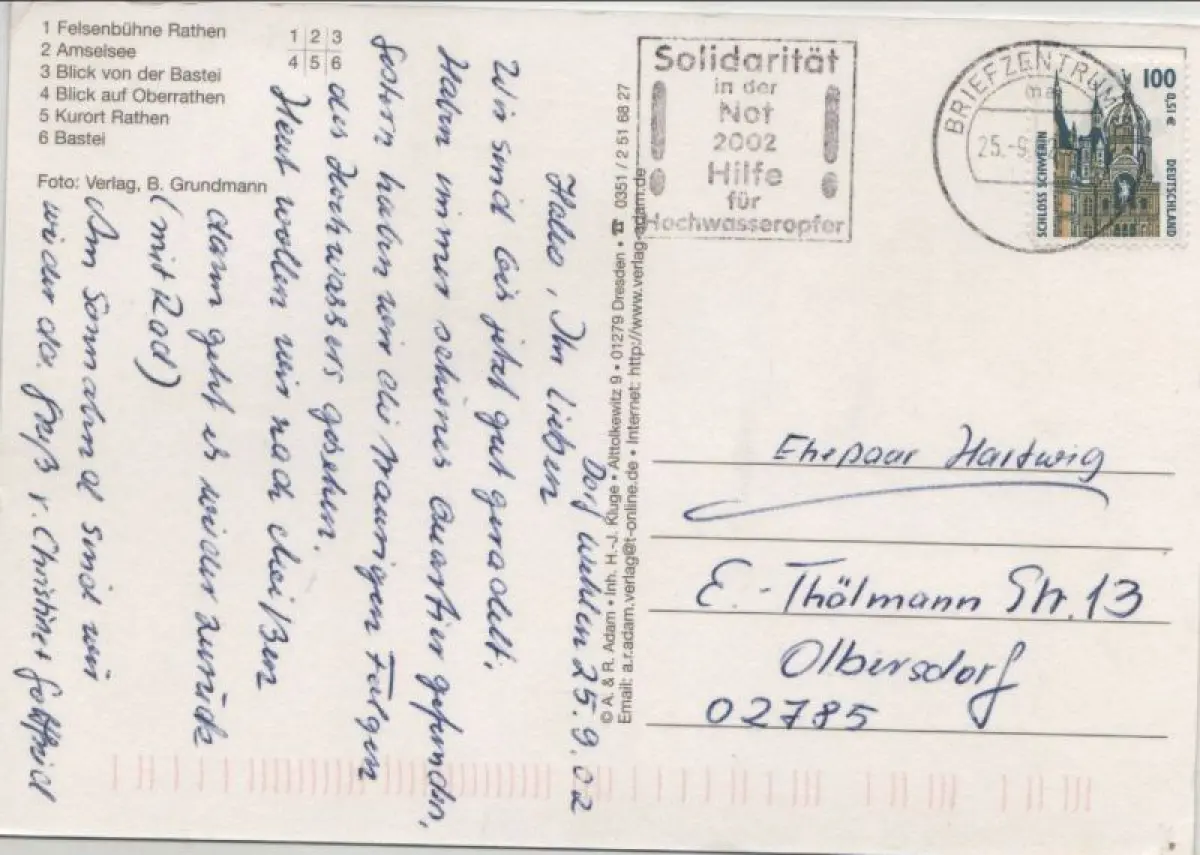 1 Felsenbühne Rathen
2 Amselsee
3 Blick von der Bastei
4 Blick auf Oberrathen
5 Kurort Rathen
6 Bastei
1 2 3
4 5 6
Foto: Verlag, B. Grundmann
Dorf Wehlen 25.9.02
Hallo, Ihr Lieben
Wir sind bis jetzt gut geradelt,
Habn immer schönes Quartier gefunden,
Gestern haben wir die traurigen Folgen
des Hochwassers gesehen.
Heut wollen wir nach Meißen
dann geht es wieder zurück
(mit Rad)
Am Sonnabend sind wir
wieder da. Gruß v. Christine Gottfried
© A. & R. Adam • Inh. H.-J. Kluge • Alttolkewitz 9 • 01279 Dresden • ☎ 0351 / 2 51 68 27
Email: a.r.adam.verlag@t-online.de • Internet: http://www.verlag-adam.de
Solidarität
in der
Not
2002
Hilfe
für
Hochwasseropfer
BRIEFZENTRUM
25.-9.
100
0,51 €
SCHLOSS SCHWERIN
DEUTSCHLAND
Ehepaar Hartwig
E.-Thölmann Str. 13
Olbersdorf
02785